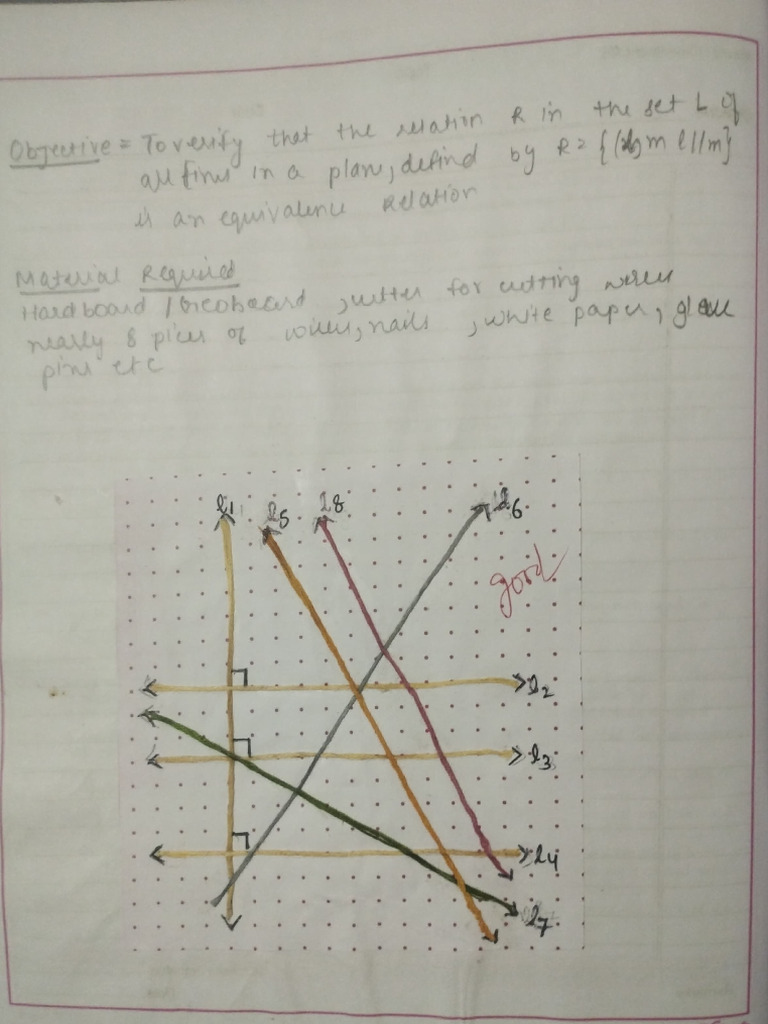 Objective = To verify that the relation R in the set L of
all lines in a plane, defind by R = {(l,m l//m}
is an equivalence Relation
Material Required
Hardboard / , cutter for cutting wires
nearly 8 pices of wires, nails , white paper, glue
pins etc
l1
l5
l8
l6
good
l2
l3
l4
l7